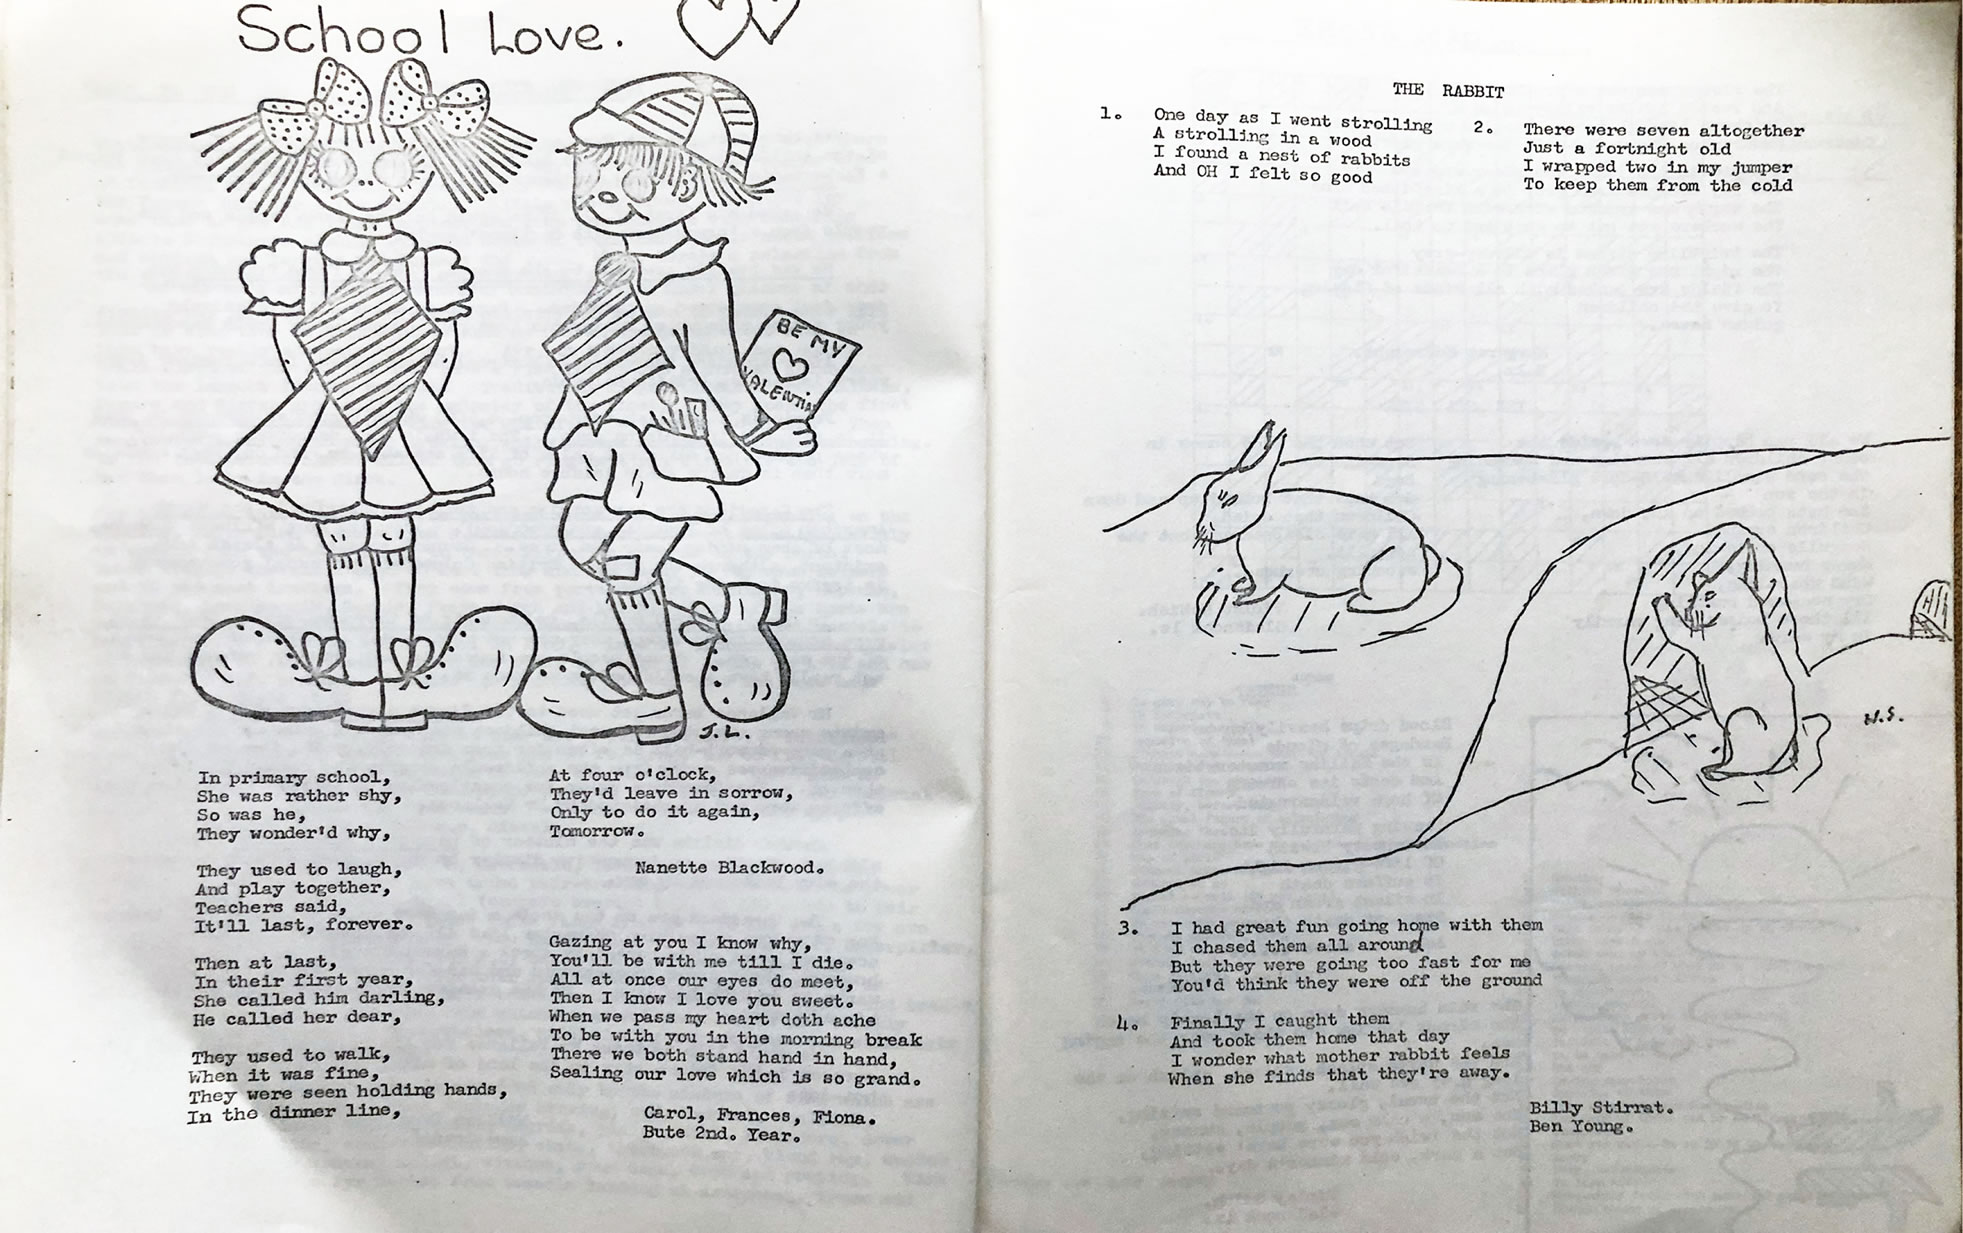 School Love.
BE MY
VALENTIN
J.L.
In primary school,
She was rather shy,
So was he,
They wonder'd why,
They used to laugh,
And play together,
Teachers said,
It'll last, forever.
Then at last,
In their first year,
She called him darling,
He called her dear,
They used to walk,
When it was fine,
They were seen holding hands,
In the dinner line,
At four o'clock,
They'd leave in sorrow,
Only to do it again,
Tomorrow.
Nanette Blackwood.
Gazing at you I know why,
You'll be with me till I die.
All at once our eyes do meet,
Then I know I love you sweet.
When we pass my heart doth ache
To be with you in the morning break
There we both stand hand in hand,
Sealing our love which is so grand.
Carol, Frances, Fiona.
Bute 2nd. Year.
THE RABBIT
1. One day as I went strolling
A strolling in a wood
I found a nest of rabbits
And OH I felt so good
2. There were seven altogether
Just a fortnight old
I wrapped two in my jumper
To keep them from the cold
N.S.
3. I had great fun going home with them
I chased them all around
But they were going too fast for me
You'd think they were off the ground
4. Finally I caught them
And took them home that day
I wonder what mother rabbit feels
When she finds that they're away.
Billy Stirrat.
Ben Young.